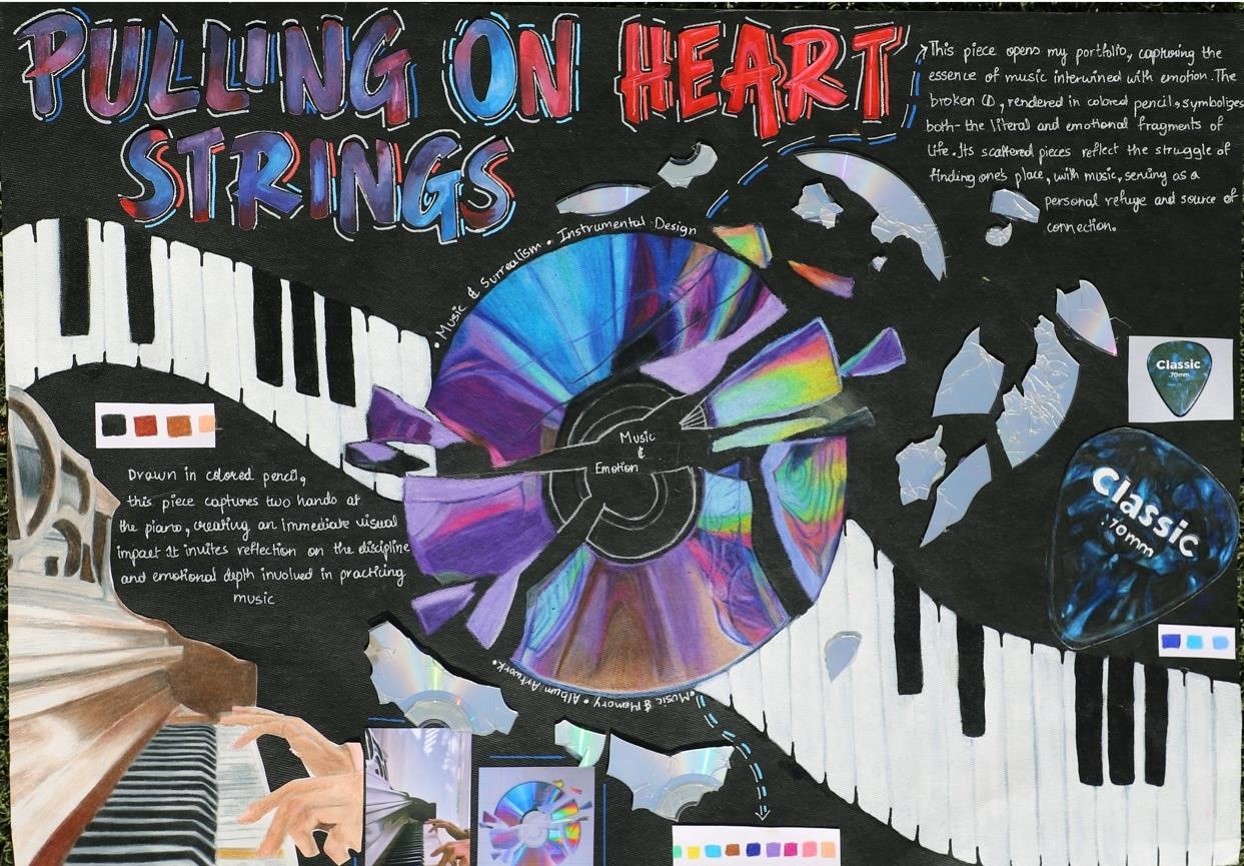 PULLING ON HEART
STRINGS
This piece opens my portfolio, capturing the
essence of music intertwined with emotion. The
broken CD, rendered in colored pencil, symbolizes
both- the literal and emotional fragments of
life. Its scattered pieces reflect the struggle of
finding one's place, with music, serving as a
personal refuge and source of
connection.
• Music & Surrealism • Instrumental Design
Music
&
Emotion
Classic
.70mm
Classic
.70mm
Drawn in colored pencil,
this piece captures two hands at
the piano, creating an immediate visual
impact It invites reflection on the discipline
and emotional depth involved in practicing
music
• Music & Memory • Album Artwork •